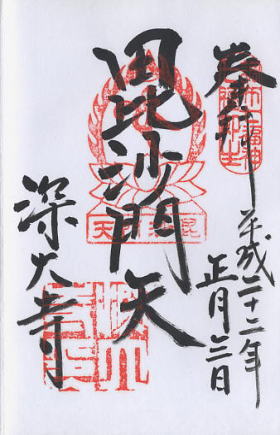 奉拝
平成二十二年
正月三日
毘沙門天
深大寺